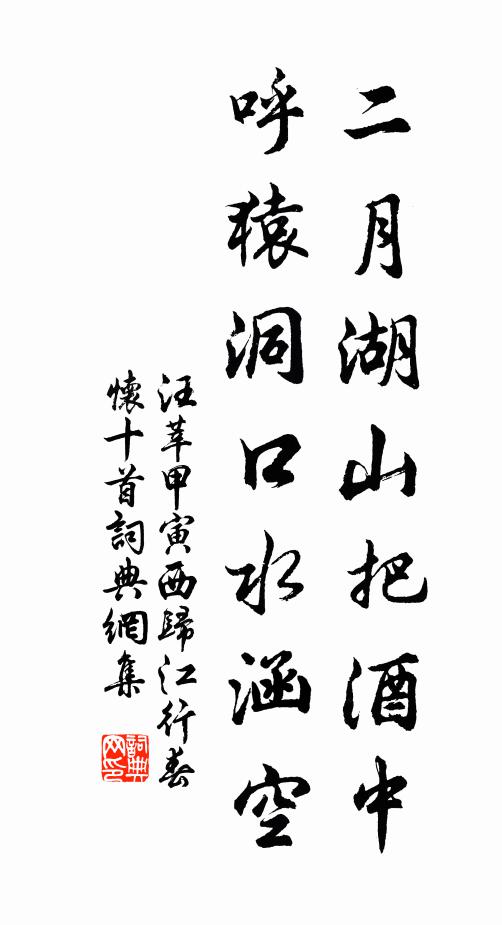 二月湖山把酒中
呼猿洞口水涵空
汪莘甲寅西歸江行春
懷十首詞典網集
詞典
网印